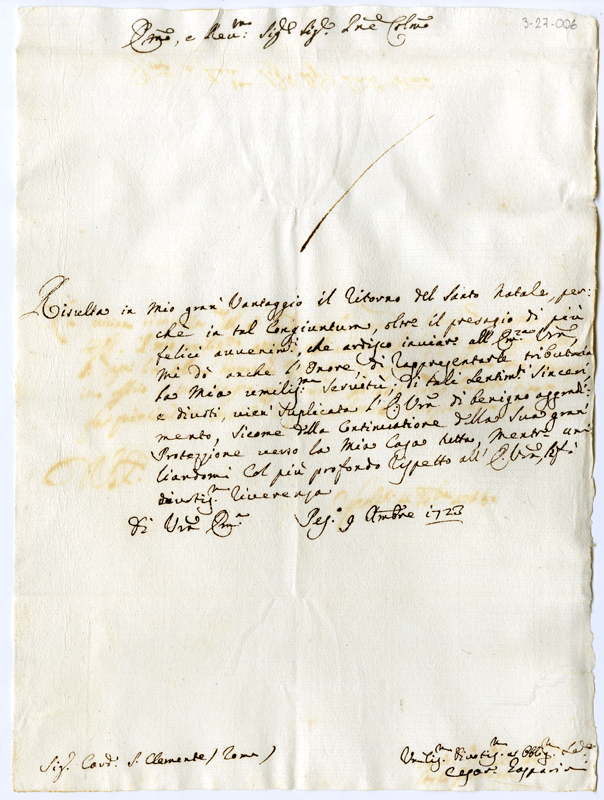 3-27-006
Emo, e Revmo: Sigre Sigr. Pne Colmo
Risulta in mio gran' Vantaggio il Ritorno del Santo Natale, per:
chè in tal Congiuntura, oltre il presagio di più
felici avvenimti, che ardisco inviare all' Emza Vra,
mi dò anche l'Onore di Rappresentarle tributaria
la Mia umiliss:ma Servitù; Di tali sentimti sinceri
e divoti, vien' suplicata l'E. Vra di benigno aggradi:
mento, sicome della Continuatione della Sua gran'
Protezzione verso la Mia Casa tutta, mentre umi:
liandomi Col più profondo Rispetto all' E. Vra, fò
divotissma Riverenza
Di Vra Emza Pes.o 9 Xmbre 1723
Sigr. Card. S. Clemente (Roma)
Umilis. Divotis. et Obblig. Se.re